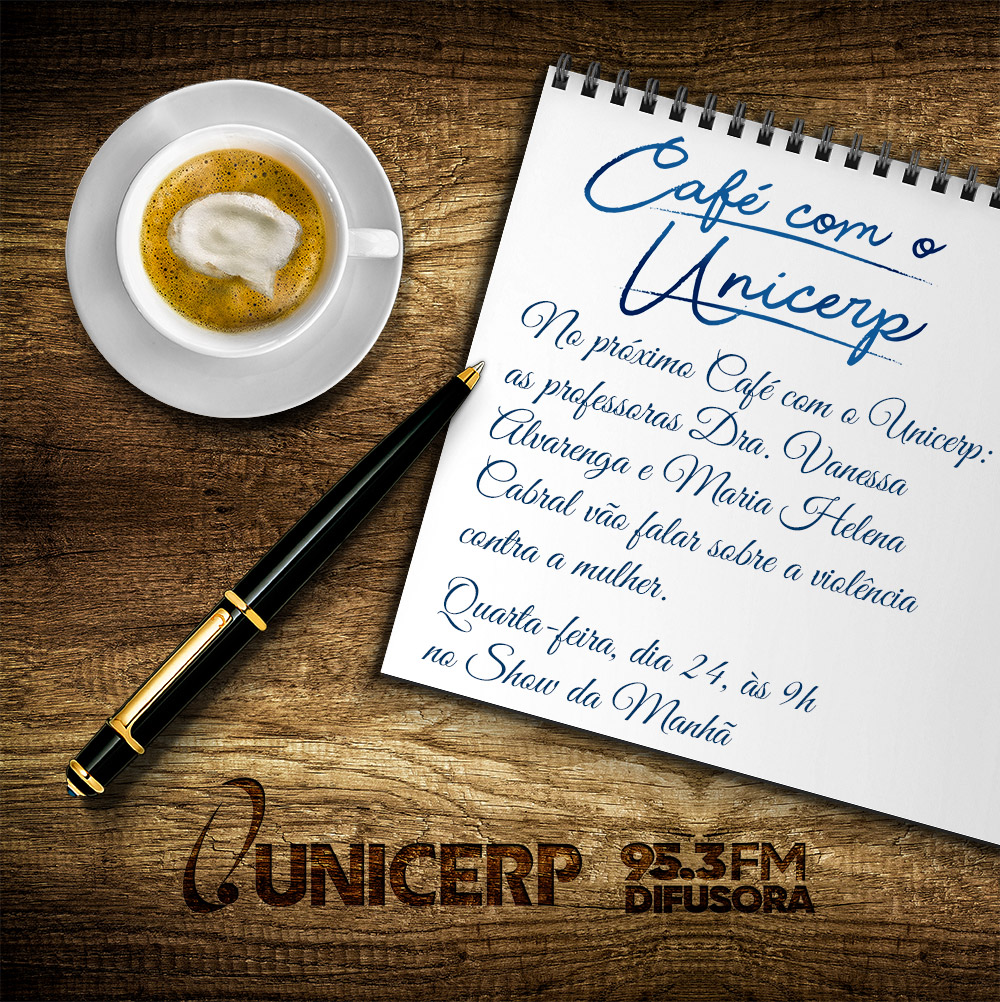 Café com o
Unicerp
No próximo Café com o Unicerp:
as professoras Dra. Vanessa
Alvarenga e Maria Helena
Cabral vão falar sobre a violência
contra a mulher.
Quarta-feira, dia 24, às 9h
no Show da Manhã
UNICERP
95.3 FM
DIFUSORA